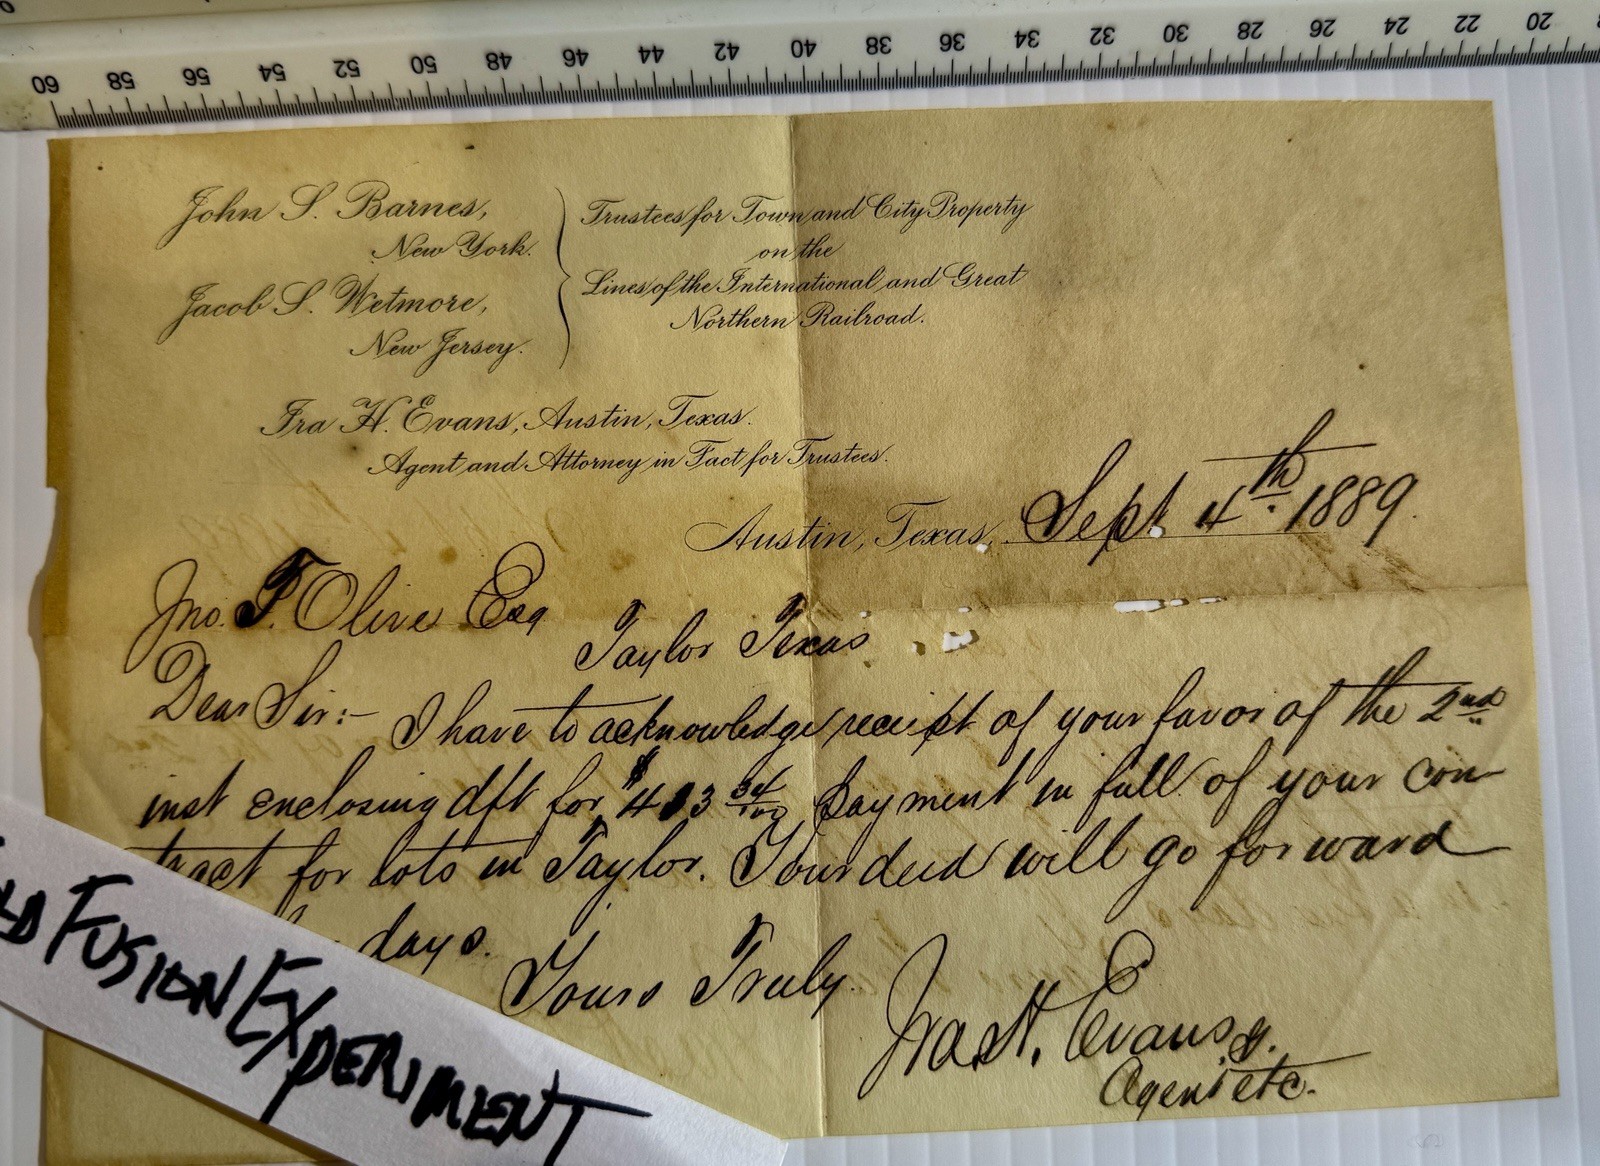 60 58 56 54 52 50 48 46 44 42 40 38 36 34 32 30 28 26 24 22 20
John S. Barnes,
New York.
Jacob S. Wetmore,
New Jersey.
Trustees for Town and City Property
on the
Lines of the International and Great
Northern Railroad.
Ira H. Evans, Austin, Texas.
Agent and Attorney in Fact for Trustees.
Austin, Texas, Sept 4th. 1889.
Jno. T. Olive Esq
Taylor Texas
Dear Sir:- I have to acknowledge receipt of your favor of the 2nd
inst enclosing dft for $413 34/100 payment in full of your con
tract for lots in Taylor. Your deed will go forward
days.
Yours Truly
Ira H. Evans
Agent etc.
FUSION EXPERIMENT